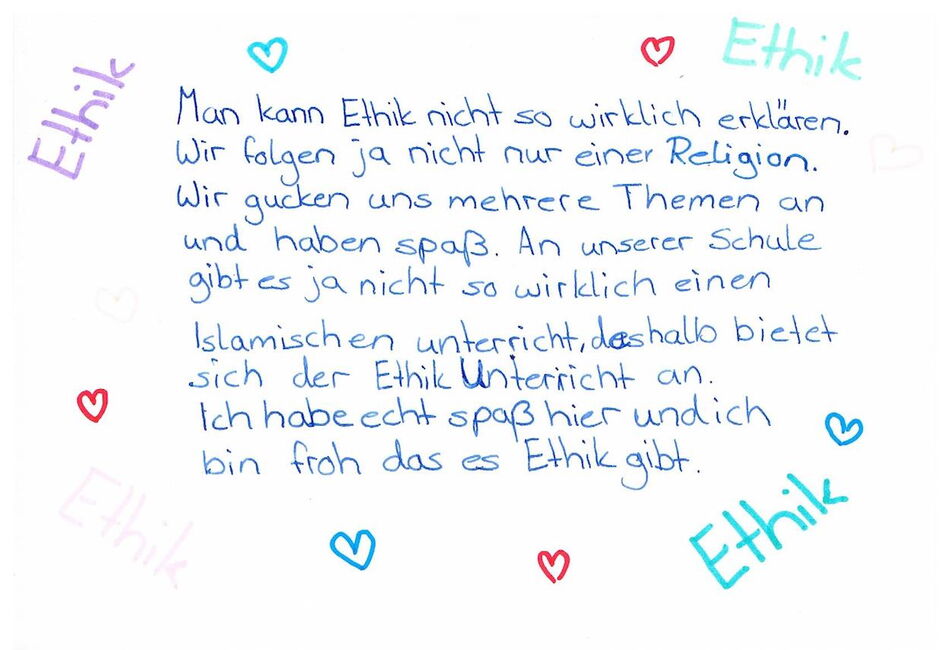 Ethik
Ethik
Man kann Ethik nicht so wirklich erklären.
Wir folgen ja nicht nur einer Religion.
Wir gucken uns mehrere Themen an
und haben spaß. An unserer Schule
gibt es ja nicht so wirklich einen
Islamischen unterricht, deshalb bietet
sich der Ethik Unterricht an.
Ich habe echt spaß hier und ich
bin froh das es Ethik gibt.
Ethik
Ethik